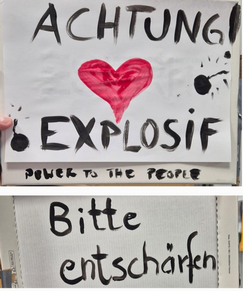 ACHTUNG!
EXPLOSIF
POWER TO THE PEOPLE
Bitte
entschärfen